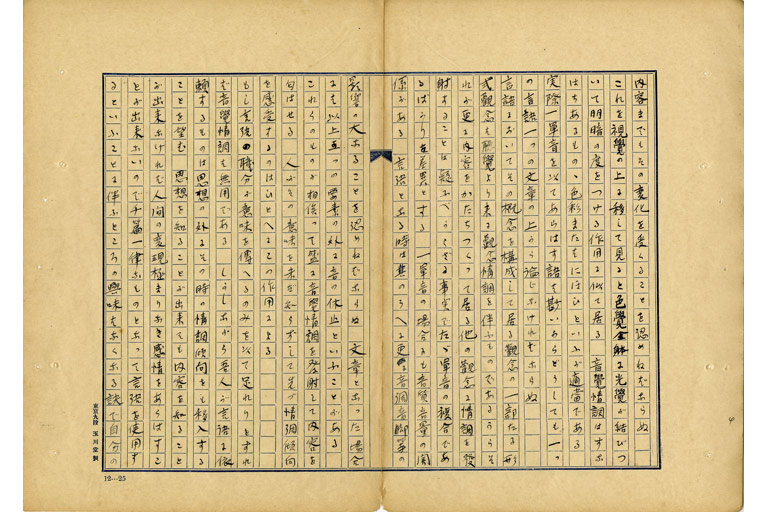 内容までもその変化を受くることを認めねばならぬ
これを視覺の上に移して見ると色覺全体に光覺が結びつ
いて明暗の度をつける作用に似て居る 音覺情調はすな
はちあるものゝ色彩またはにほひといふが適當である
実際一単音を以てあらはす語は数いあらどうしても一つ
の言語一つの文章の上から論じなければならぬ
言語においてその概念を構成して居る観念の一部たる形
式観念も聽覺より来る観念情調を伴ふものであるからそ
れが更に内容をかたちづくつて居る他の観念に情調を發
射することは疑ふべからざる事実でたゞ単音の複合であ
るばかりを差異とする 一単音の場合にも音質音量の関
係がある 言語とある時は其のうへに更に音調音脚等の
影響の大なることを認めねばならぬ 文章となつた場合
にも以上五つの要素の外に音の休止といふことがある
これらのものが相俟つて並に音覺情調を發射して内容を
匂はせる 人がその意味を未だ知らずして先づ情調傾向
を感受するのはひとへにこの作用による
もし言語の職分が意味を傳へるのみを以て足れりとすれ
ば音覺情調も無用である しかしながら吾人が言語に依
頼するものは思想の外にその時の情調傾向をも移入する
ことを望む 思想を知ることが出来ても内容を知ること
が出来なければ人間の表現極まりなき感情をあらはすこ
とが出来ないので千篇一律なものとなつて言語を使用す
るといふことに伴ふところの興味もなくなる 訣で自分の
東京九段 玉川堂製
12…25